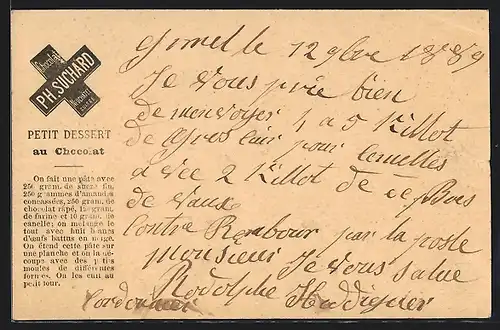 Chocolat
PH. SUCHARD
Neuchâtel
SUISSE
PETIT DESSERT
au Chocolat
On fait une pâte avec
250 gram. de sucre fin,
250 grammes d'amandes
concassées, 250 gram. de
chocolat râpé, 125 gram.
de farine et 10 gram. de
canelle; on mélange le
tout avec huit blancs
d'œufs battus en neige.
On étend cette pâte sur
une planche et on la dé-
coupe avec des petits
moules de différentes
formes. On les cuit au
petit four.
Gimel le 12 9bre 1889
Je vous prie bien
de menvoyer 4 a 5 Killot
de Gros Cuir pour semelles
avec 2 Killot de ce Bas
de Vaux
Contre Rembour par la poste
monsieur Je vous salue
Rodolphe
Cordonnier